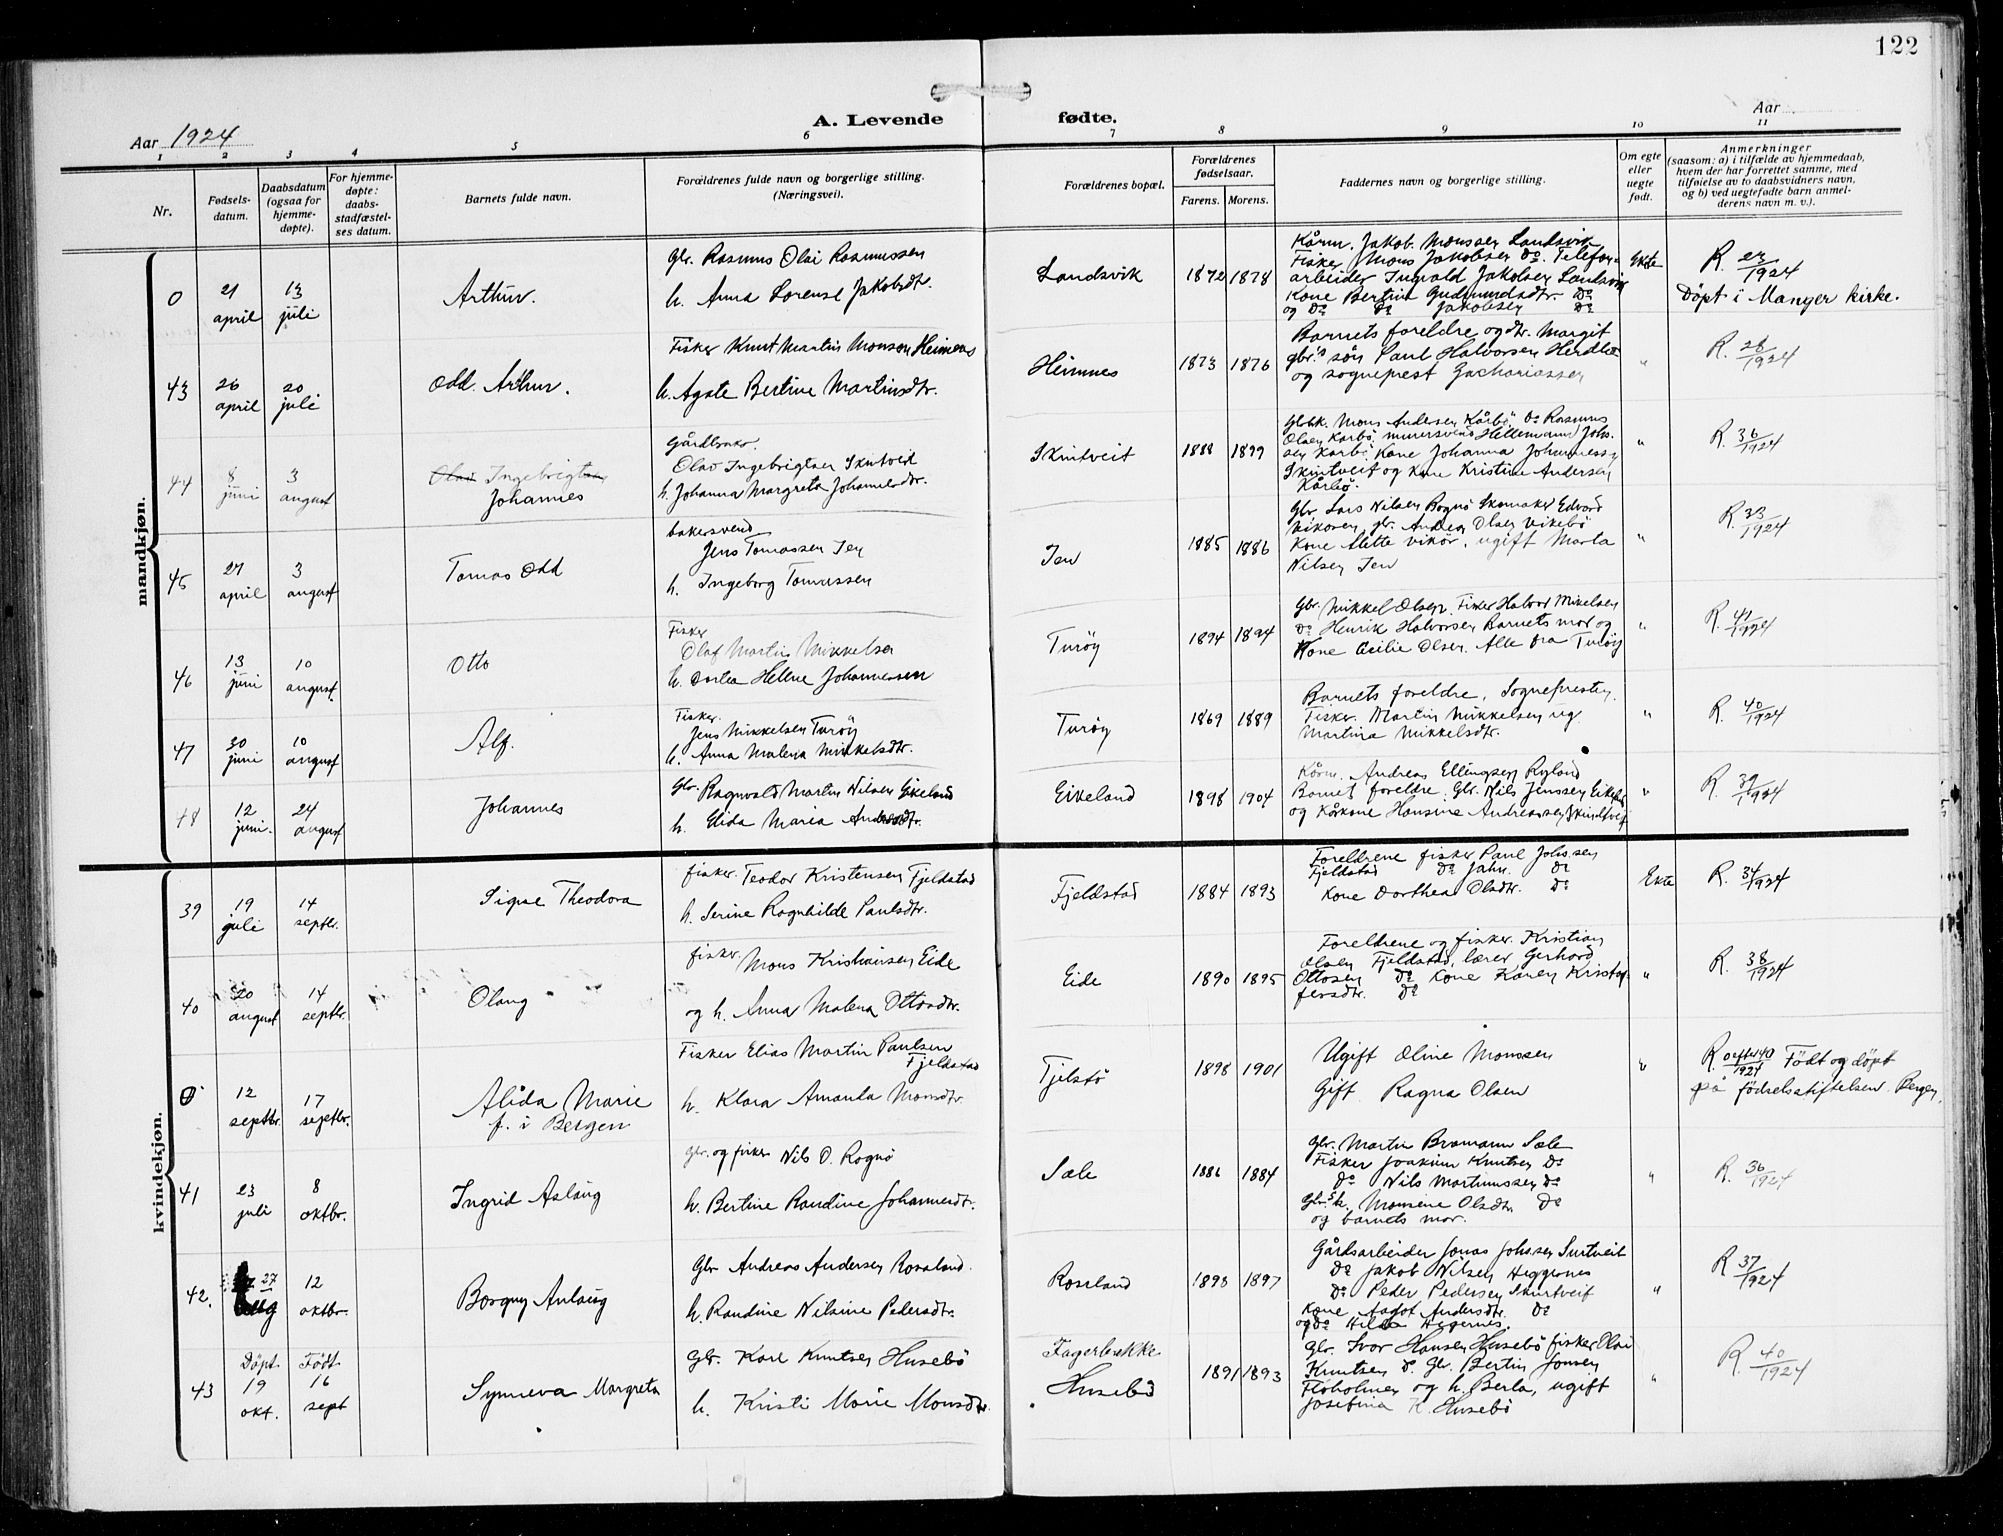 122
Aar 1924
A. Levende
fødte.
Aar
1 2 3 4 5 6 7 8 9 10 11
Nr.
Fødsels-
datum.
Daabsdatum
(ogsaa for
hjemme-
døpte).
For hjemme-
døpte:
daabs-
stadfæstel-
ses datum.
Barnets fulde navn.
Forældrenes fulde navn og borgerlige stilling.
(Næringsvei).
Forældrenes bopæl.
Forældrenes
fødselsaar.
Farens. Morens.
Faddernes navn og borgerlige stilling.
Om egte
eller
uegte
født.
Anmerkninger
(saasom: a) i tilfælde av hjemmedaab,
hvem der har forrettet samme, med
tilføielse av to daabsvidners navn,
og b) ved uegtefødte barn anmel-
derens navn m. v.).
mandkjøn.
0
21
april
13
juli
Arthur.
Gbr. Rasmus Olai Rasmussen
h. Anna Lorense Jakobsdtr.
Landsvik
1872 1878
Kårm. Jakob Monssen Landsvik
Fisker Mons Jakobsen Do. Telefon-
arbeider Ingvald Jakobsen Landsvik
Kone Bertine Gudmundsdtr. Do
og Do Do Jakobsen Do
Ekte
R. 23/1924
Døpt i Manger kirke.
43
26
april
20
juli
Odd Arthur.
Fisker Knut Martin Monsen Heimnes
h. Agate Bertine Martinsdtr.
Heimnes
1873 1876
Barnets foreldre og dtr. Margit
gbr.'s søn Paul Halvorsen Herdla
og sogneprest Zachariassen
"
R. 28/1924
44
8
juni
3
august
Olav Ingebrigtsen
Johannes
Gårdbruker
Olav Ingebrigtsen Skutveit
h. Johanna Margreta Johannesdtr.
Skintveit
1888 1899
Gbrk. Mons Andersen Kårbø, Do Rasmus
Olsen Karbø, murersvend Hillemann Johs.
sen Karbø. Kone Johanna Johannessen
Skintveit og kone Kristine Andersen
Kårbø.
"
R. 36/1924
45
27
april
3
august
Tomas Odd
bakersvend
Jens Tomassen Jen
h. Ingeborg Tomassen
Jen
1885 1886
Gbr Lars Nilsen Rognø Skomaker Edvard
Vikøren, gbr. Andreas Olsen Vikebø
Kone Alette Vikør, ugift Marta
Nilsen Jen
"
R. 33/1924
46
13
juni
10
august
Otto
Fisker
Olaf Martin Mikkelsen
h. Dortea Helene Johannessen
Turøy
1894 1894
Gbr. Mikkel Olsen, Fisker Halvor Mikelsen
Do Henrik Halvorsen Barnets mor og
Kone Cecilie Olsen. Alle fra Turøy
"
R. 41/1924
47
30
juni
10
august
Alf.
Fisker.
Jens Mikkelsen Turøy
h. Anna Malena Mikkelsdtr.
Turøy
1869 1889
Barnets foreldre, Sognepresten,
Fisker Martin Mikkelsen ug.
Martina Mikkelsdtr.
"
R. 40/1924
48
12
juni.
24
august
Johannes
Gbr. Ragnvald Martin Nilsen Eikeland
h. Elida Maria Andersdtr.
Eikeland
1898 1904
Kårm. Andreas Ellingsen Ryland
Barnets foreldre. Gbr. Nils Jenssen Eikeland
og Kårkone Hansine Andreassen Skintveit
"
R. 39/1924
kvindekjøn.
39
19
juli
14
septbr.
Signe Theodora
fisker. Teodor Kristensen Fjeldstad
h. Serine Ragnhilde Paulsdtr.
Fjeldstad
1884 1893
Foreldrene fisker Paul Johssen
Fjeldstad Do Jahn. Do
Kone Dorthea Olsdtr. Do
Ekte
R. 34/1924
40
20
august
14
septbr.
Olaug
fisker.
Mons Kristiansen Eide
og h. Anna Malena Ottosdtr.
Eide
1890 1895
Foreldrene og fisker Kristian
Olsen Fjeldstad, lærer Gerhard
Ottosen Do Kone Karen Kristof-
fersdtr. Do
"
R. 38/1924
0
12
septbr.
17
septbr.
Alida Marie
f. i Bergen
Fisker Elias Martin Paulsen
Fjeldstad
h. Klara Amanda Monsdtr.
Fjelstø
1898 1901
Ugift Oline Monssen
Gift Ragna Olsen
"
R. 0 efter 40/1924 Født og døpt
på fødselsstiftelsen. Bergen.
41
23
juli
8
oktbr.
Ingrid Aslaug
Gbr. og fisker Nils O. Rognø
h. Bertine Randine Johannesdtr.
Sæle
1886 1884
Gbr. Martin Bramann Sæle
Fisker Joakim Knutsen Do
Do Nils Martinussen Do
Gbr.s k. Monsine Olsdtr. Do
og barnets mor.
"
R. 36/1924
42.
27
aug
12
oktbr.
Borgny Anlaug
Gbr Andreas Andersen Rosaland.
h. Randine Nilsine Pedersdtr.
Roseland
1893 1897
Gårdsarbeider Jonas Johssen Skurtveit
Do Jakob Nilsen Heggernes
Do Peder Pedersen Skurtveit
Kone Aagot Andersdtr. Do
og Do Hilda Hegernes.
"
R 37/1924
43
Døpt
19
okt.
Født
16
sept
Synneva Margreta
Gbr. Karl Knutsen Husebø
h. Kristi Marie Monsdtr.
Fagerbakke
Husebø
1891 1893
Gbr. Ivar Hansen Husebø fisker Olai
Knutsen D. Gbr. Bertin Jonsen
Floholmen og h. Berta, ugift
Josefina K. Husebø
"
R. 40/1924